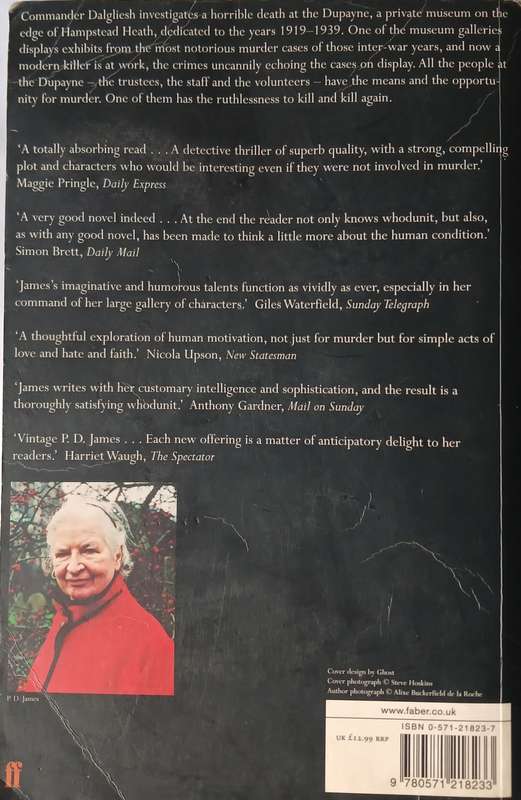 Commander Dalgliesh investigates a horrible death at the Dupayne, a private museum on the
edge of Hampstead Heath, dedicated to the years 1919–1939. One of the museum galleries
displays exhibits from the most notorious murder cases of those inter-war years, and now a
modern killer is at work, the crimes uncannily echoing the cases on display. All the people at
the Dupayne – the trustees, the staff and the volunteers – have the means and the opportu-
nity for murder. One of them has the ruthlessness to kill and kill again.
‘A totally absorbing read . . . A detective thriller of superb quality, with a strong, compelling
plot and characters who would be interesting even if they were not involved in murder.’
Maggie Pringle, Daily Express
‘A very good novel indeed . . . At the end the reader not only knows whodunit, but also,
as with any good novel, has been made to think a little more about the human condition.’
Simon Brett, Daily Mail
‘James’s imaginative and humorous talents function as vividly as ever, especially in her
command of her large gallery of characters.’ Giles Waterfield, Sunday Telegraph
‘A thoughtful exploration of human motivation, not just for murder but for simple acts of
love and hate and faith.’ Nicola Upson, New Statesman
‘James writes with her customary intelligence and sophistication, and the result is a
thoroughly satisfying whodunit.’ Anthony Gardner, Mail on Sunday
‘Vintage P. D. James . . . Each new offering is a matter of anticipatory delight to her
readers.’ Harriet Waugh, The Spectator
P. D. James
Cover design by Ghost
Cover photograph © Steve Hoskins
Author photograph © Alixe Buckerfield de la Roche
www.faber.co.uk
ISBN 0-571-21823-7
UK £12.99 RRP
9 780571 218233
ff